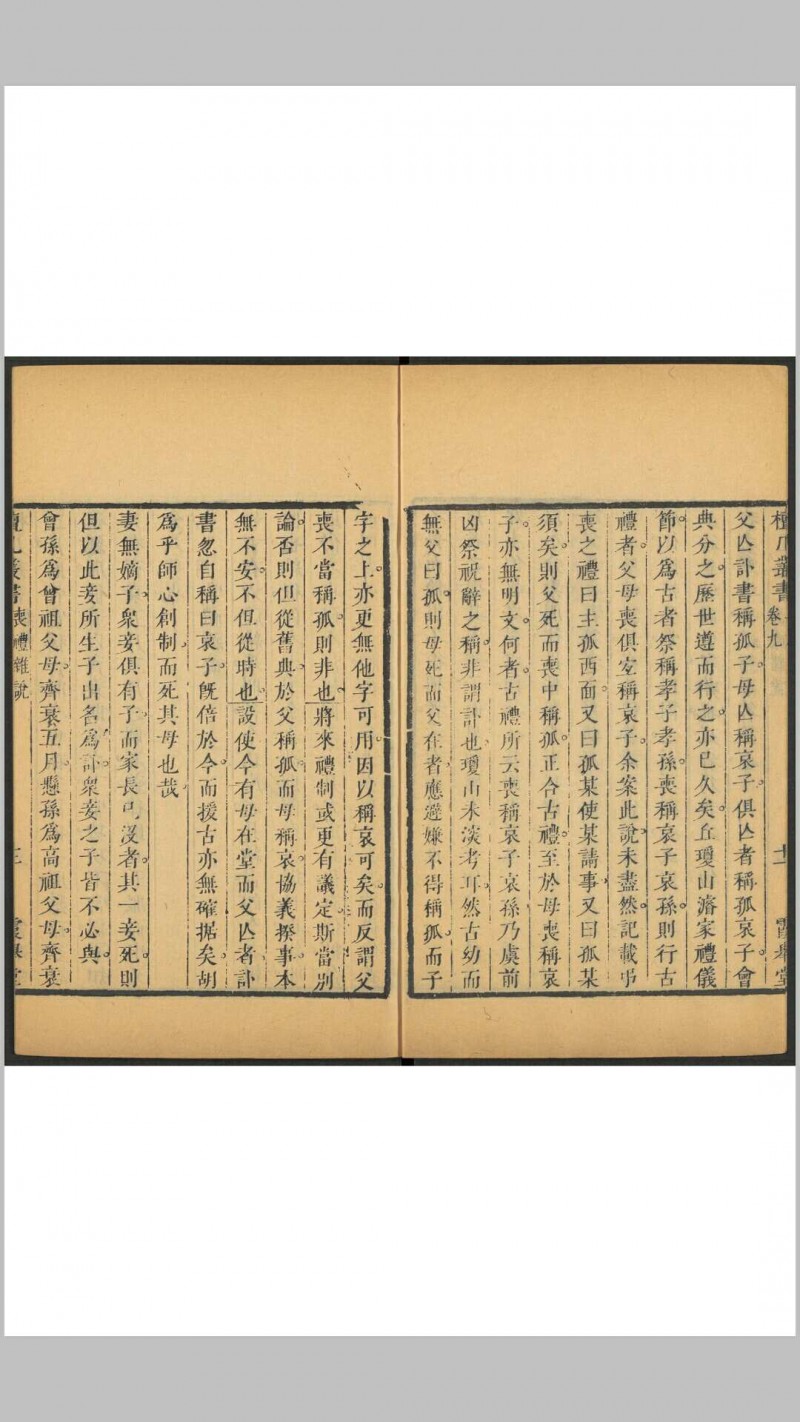 檀几叢書 卷九 十二 霞舉堂
父亾訃書稱孤子母亾稱哀子俱亾者稱孤哀子會
典分之歷世遵而行之亦已久矣丘瓊山濬家禮儀
節以爲古者祭稱孝子孝孫喪稱哀子哀孫則行古
禮者父母喪俱宐稱哀子余案此說未盡然記載弔
喪之禮曰主孤西面又曰孤某使某請事又曰孤某
須矣則父死而喪中稱孤正合古禮至於母喪稱哀
子亦無明文何者古禮所云喪稱哀子哀孫乃虞前
凶祭祝辭之稱非謂訃也瓊山未深考耳然古幼而
無父曰孤則母死而父在者應避嫌不得稱孤而子
字之上亦更無他字可用因以稱哀可矣而反謂父
喪不當稱孤則非也將來禮制或更有議定斯當別
論否則但從舊典於父稱孤而母稱哀協義揆事本
無不安不但從時也設使今有母在堂而父亾者訃
書忽自稱曰哀子旣倍於今而援古亦無確据矣胡
爲乎師心創制而死其母也哉
妻無嫡子衆妾俱有子而家長已沒者其一妾死則
但以此妾所生子出名爲訃衆妾之子皆不必與
曾孫爲曾祖父母齊衰五月懸孫爲高祖父母齊衰
檀几叢書 喪禮雜說 三 霞舉堂